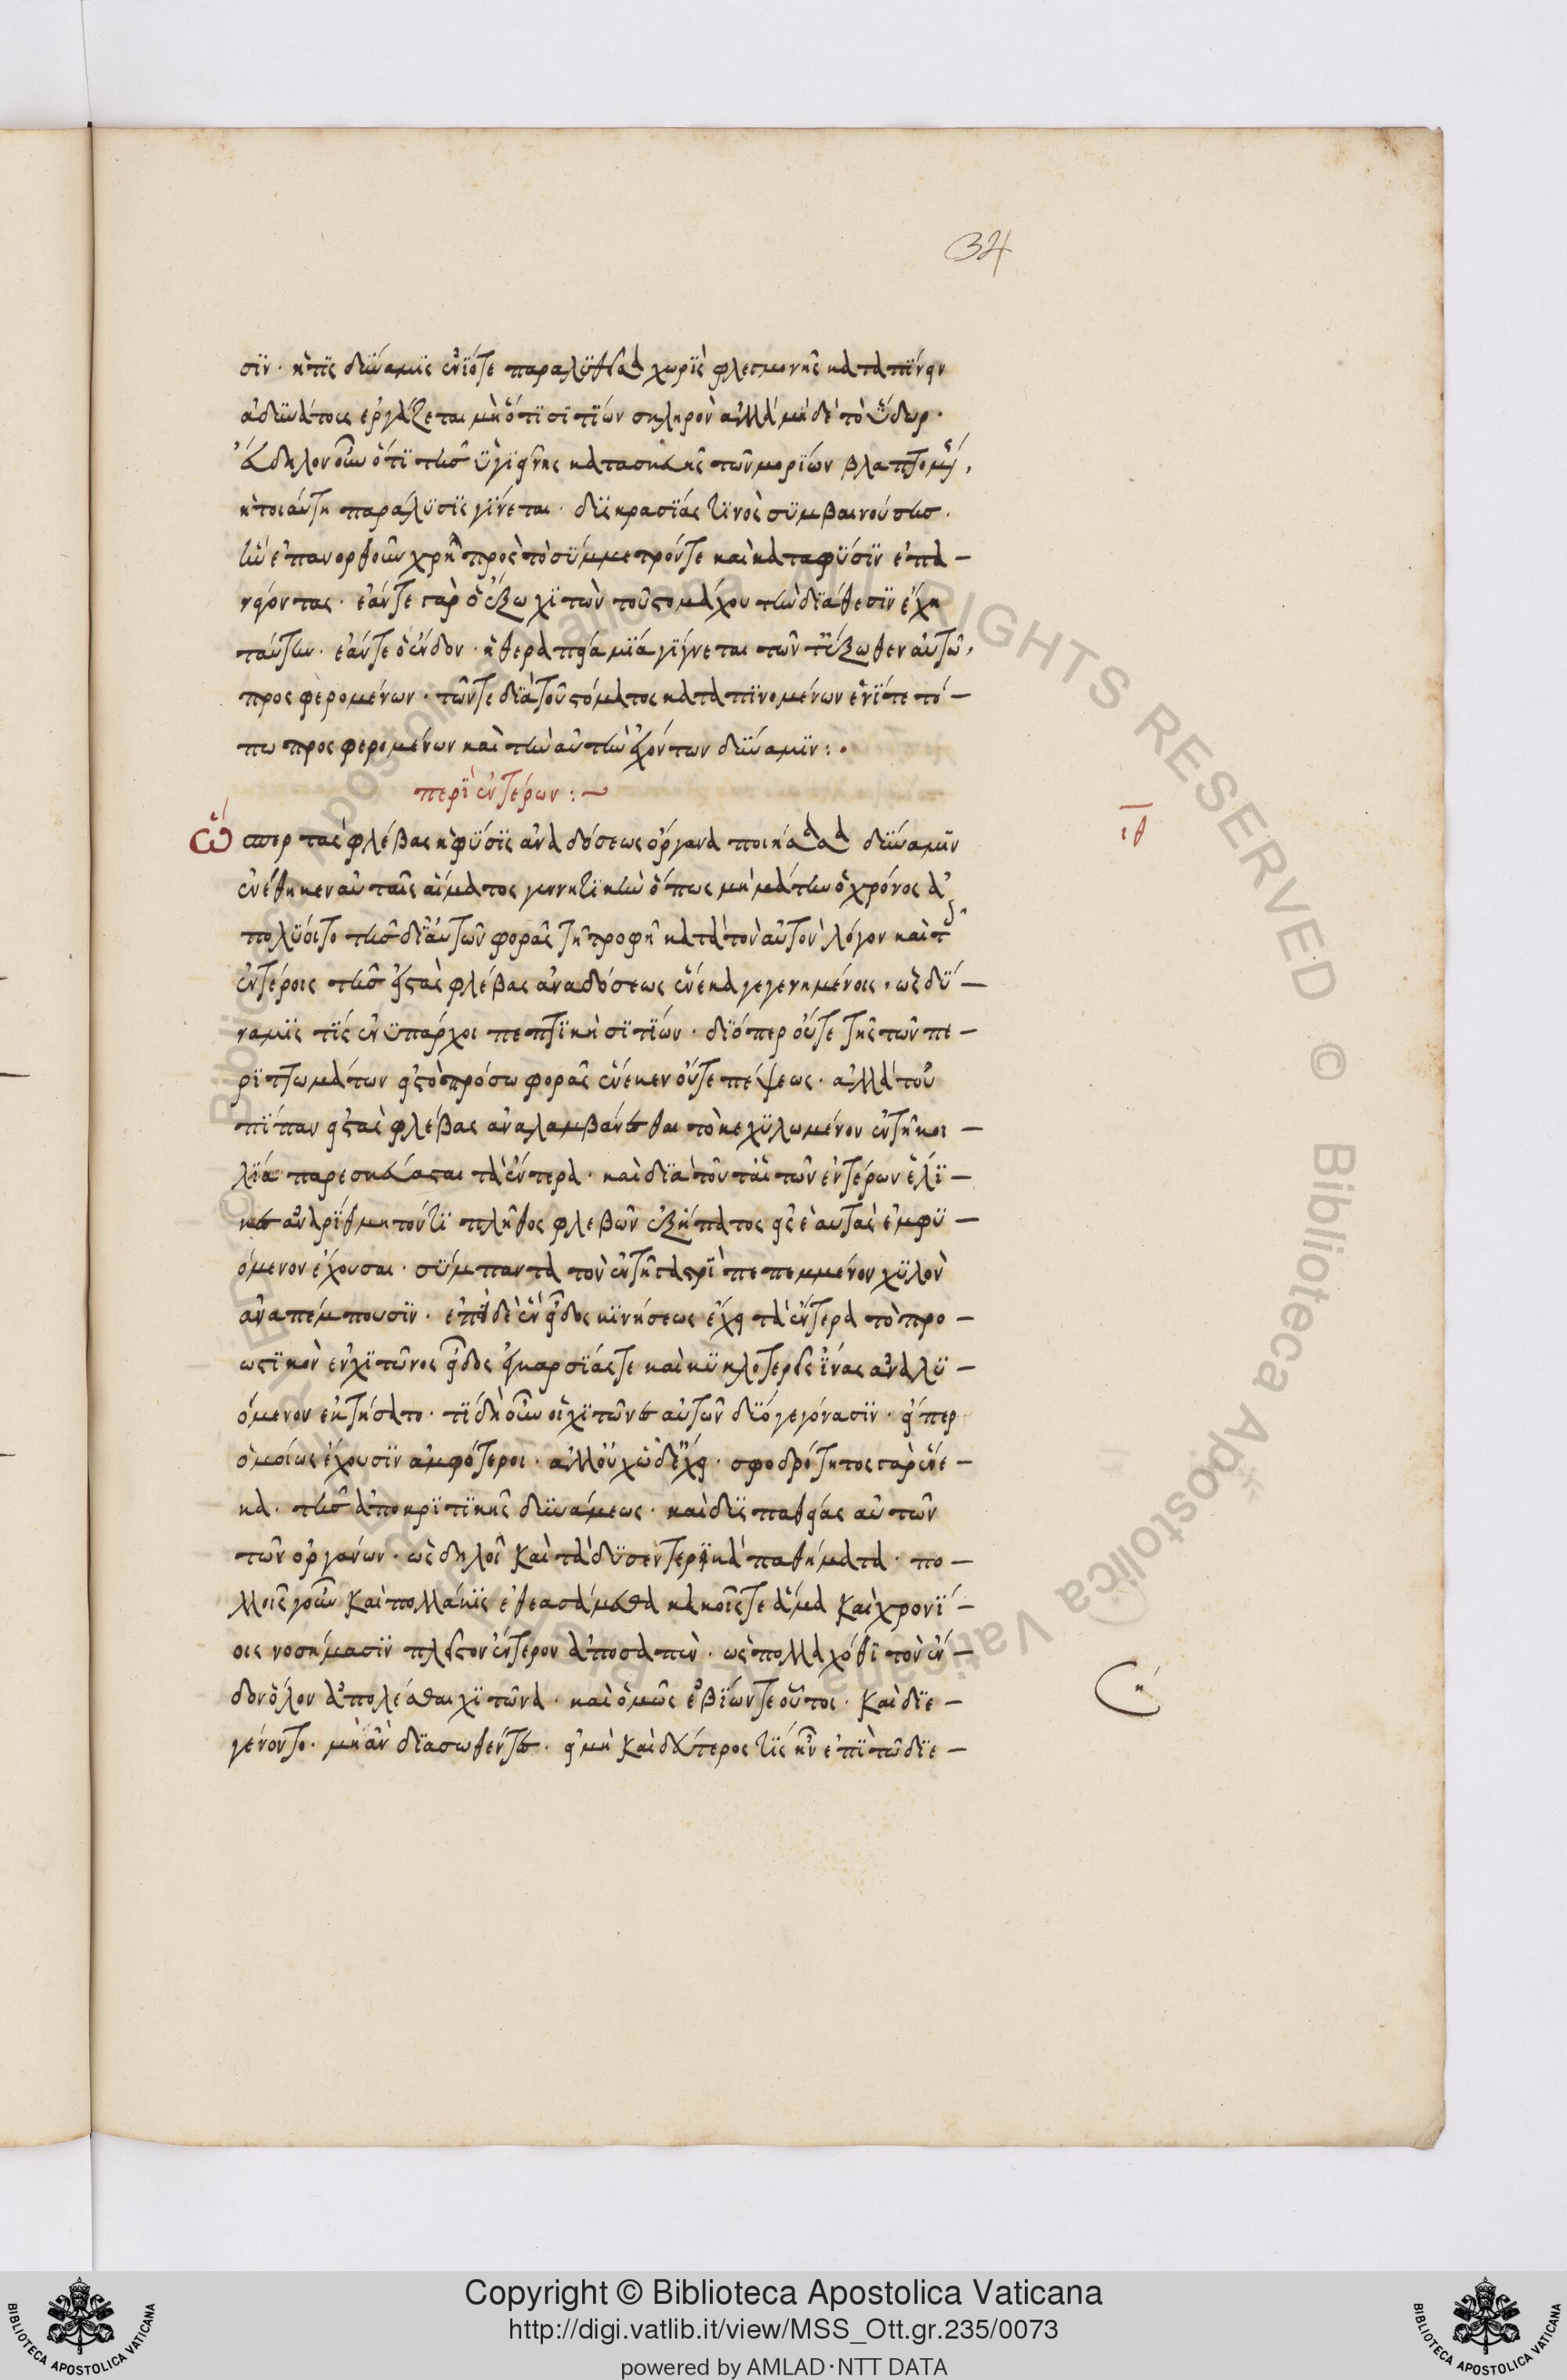 34
σϊν· ἥτϊς δϋναμϊς ἐνϊότε παραλϋθεῖσα χωρϊς φλεγμονῆς καταπϊνειν
ἀδϋνάτους ἐργάζεται μὴ ὅτϊ σϊτϊών σκληρὸν ἀλλὰ μὴδὲ τὸ ὕδωρ·
εὔδηλον οὖν ὅτϊ τῆς ϋγϊεινῆς κατασκευῆς τῶν μορϊών βλαπτομένης,
ἡ τοιάυτη παράλϋσϊς γϊνεται· δϋσκρασϊάς τϊνὸς σϋμβαινούσης·
ἣν ἐπανορθοῦν χρὴ πρὸς τὸ σϋμμετρόν τε καὶ κατὰ φϋσϊν ἐπα-
νάγοντας· ἐάν τε γὰρ ὁ ἔξω χϊτὼν τοῦ στομάχου τὴν δϊάθεσϊν ἔχη
ταύτην· ἐάν τε ὁ ἔνδον· ἡ θεραπεία μϊά γϊγνεται τῶν τ' ἔξωθεν αὐτῶ,
προσφερομένων· τῶν τε δϊὰ τοῦ στόματος καταπϊνομένων ἑνϊ τε τό-
πω προσφερομένων καὶ τὴν αὐτὴν ἐχόντων δϋναμϊν:·
περϊ ἐντέρων:~
ιθ
ὥσπερ τὰς φλέβας ἡ φϋσϊς ἀναδόσεως ὄργανα ποιήσασα δϋναμϊν
ἐνέθηκεν αὐταῖς αἵματος γεννητϊκὴν ὅπως μὴ μάτην ὁ χρόνος ἀ
πολϋοιτο τῆς δϊ' ἀυτῶν φορᾶς τῆ τροφῆ κατὰ τὸν αὐτὸν λόγον καὶ τοῖς
ἐντέροις τῆς εἰς τὰς φλέβας ἀναδόσεως ἕνεκα γεγενημένοις· ὡς δϋ-
ναμϊς τϊς ἐνϋπάρχοι πεπτϊκὴ σϊτϊών· δϊόπερ οὔτε τῆς τῶν πε-
ρϊττωμάτων εἰς τὸ πρόσω φορᾶς ἕνεκεν οὔτε πέψεως· ἀλλὰ τοῦ
πϊπαν εἰς τὰς φλέβας ἀναλαμβάνεσθαι τὸ κεχϋλωμένον ἐν τῆ κοι-
λϊα παρεσκεύασται τὰ ἔντερα· καὶ δϊὰ τοῦτο αἱ τῶν ἐντέρων ἕλϊ-
κες ἀναρϊθμητόν τϊ πλῆθος φλεβῶν ἐξ ἥπατος εἰς ἑαυτὰς ἐμφϋ-
όμενον ἔχουσαι· σϋμπαντα τὸν ἐν τῆ γαστρϊ πεπεμμένον χϋλὸν
ἀναπέμπουσϊν· ἐπεὶ δὲ ἓν εἶδος κϊνήσεως ἔχει τὰ ἔντερα τὸ προ-
ωστϊκὸν ἑνχϊτῶνος εἶδος ἐγκαρσϊάς τε καὶ κϋκλοτερεῖς ἶνας ἀναλϋ-
όμενον ἐκτήσατο· τϊ δὴ οὖν οἱ χϊτῶνες αὐτῶν δϋο γεγόνασϊν· εἴπερ
ὁμοίως ἔχουσϊν ἀμφότεροι· ἀλλ' οὐχ ὧδ' ἔχει· σφοδρότητος γὰρ ἕνε-
κα· τῆς ἀποκρϊτϊκῆς δϋνάμεως· καὶ δϋσπαθείας αὐτῶν
τῶν ὀργάνων· ὡς δηλοῖ καὶ τὰ δϋσεντερϊκὰ παθήματα· πο-
λλοῖς γοῦν καὶ πολλάκϊς ἐθεασάμεθα κακοῖς τε ἅμα καὶ χρονϊ-
οις νοσήμασϊν πλεῖστον ἔντερον ἀποσαπὲν· ὡς πολλαχόθϊ τὸν ἔν-
δον ὅλον ἀπολέσθαι χϊτῶνα· καὶ ὅμως ἐβϊών τε οὗτοι· καὶ δϊε-
γένοντο· μὴ ἂν δϊασωθέντες· εἰ μὴ καὶ δεύτερος τϊς ἦν ἐπϊ τῶ δϊε-
Copyright © Biblioteca Apostolica Vaticana
http://digi.vatlib.it/view/MSS_Ott.gr.235/0073
powered by AMLAD·NTT DATA
BIBLIOTECA APOSTOLICA VATICANA
BIBLIOTECA APOSTOLICA VATICANA